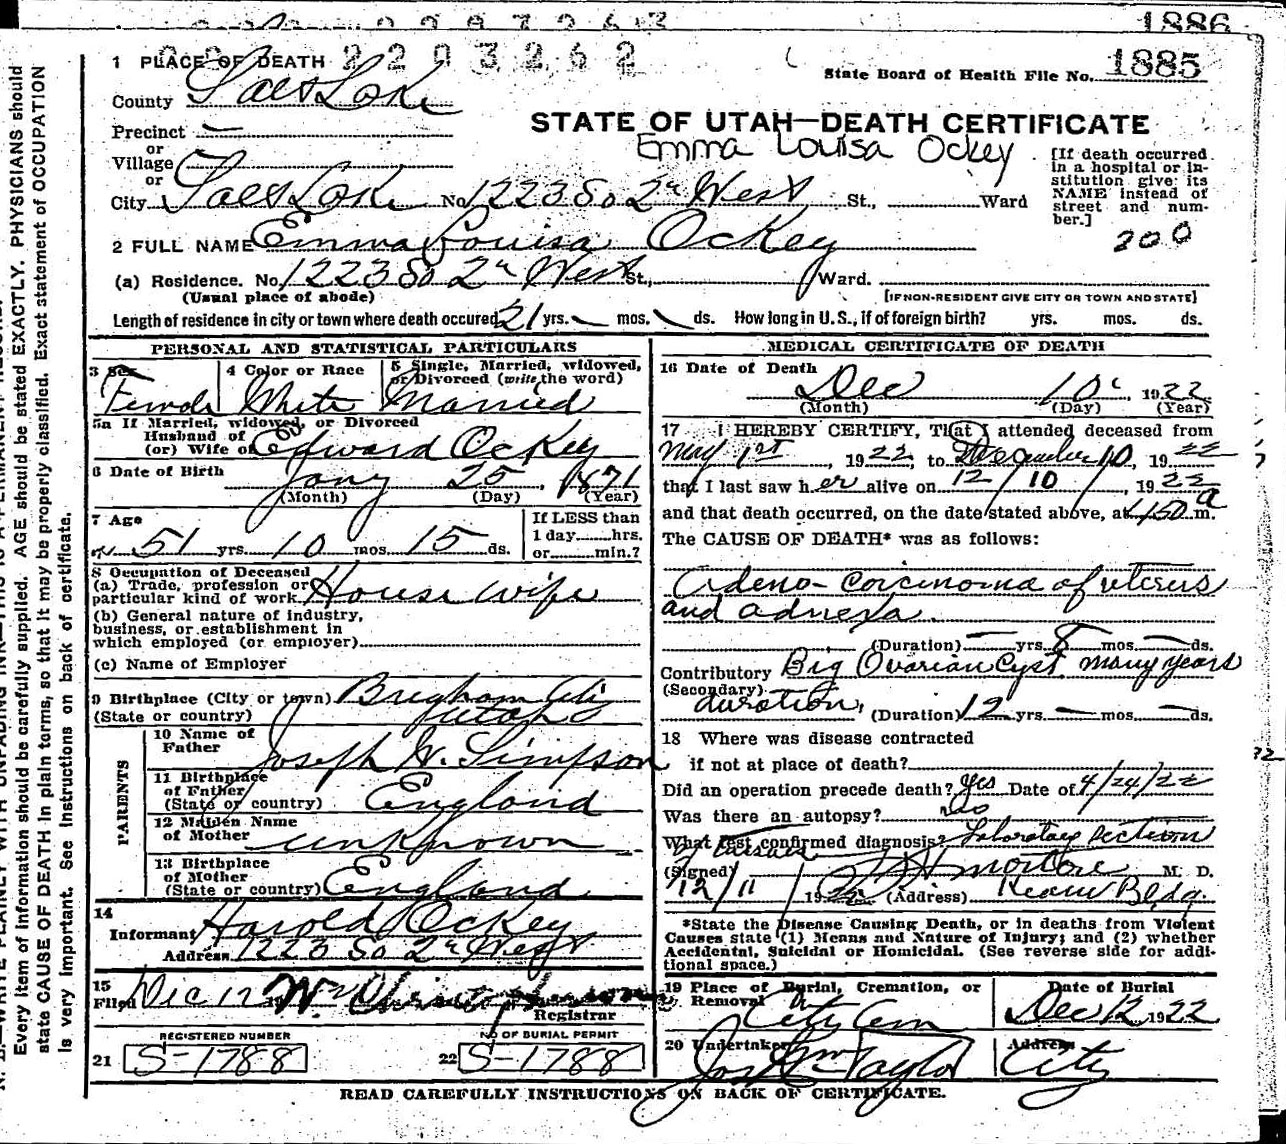 1886
2203262
1885
1 PLACE OF DEATH
State Board of Health File No. 1885
County Salt Lake
STATE OF UTAH—DEATH CERTIFICATE
Precinct —
or
Emma Louisa Ockey
Village
or
[If death occurred in a hospital or institution give its NAME instead of street and number.]
City Salt Lake No. 1223 So 2nd West St., Ward
200
2 FULL NAME Emma Louisa Ockey
(a) Residence. No. 1223 So 2nd West St., Ward.
(Usual place of abode)
[IF NON-RESIDENT GIVE CITY OR TOWN AND STATE]
Length of residence in city or town where death occured 21 yrs. — mos. — ds. How long in U. S., if of foreign birth? yrs. mos. ds.
PERSONAL AND STATISTICAL PARTICULARS
3 Sex
4 Color or Race
5 Single, Married, widowed,
or Divorced (write the word)
Female White Married
5a If Married, widowed, or Divorced
Husband of
(or) Wife of Edward Ockey
6 Date of Birth Jany 25, 1871
(Month) (Day) (Year)
7 Age
If LESS than
1 day hrs.
51 yrs. 10 mos. 15 ds.
or min.?
8 Occupation of Deceased
(a) Trade, profession or
particular kind of work House wife
(b) General nature of industry,
business, or establishment in
which employed (or employer)
(c) Name of Employer
9 Birthplace (City or town) Brigham City
(State or country) Utah
PARENTS
10 Name of
Father Joseph W. Simpson
11 Birthplace
of Father
(State or country) England
12 Maiden Name
of Mother unknown
13 Birthplace
of Mother
(State or country) England
14
Informant Harold Ockey
Address 1223 So 2nd West
15
Filed Dec 12
Registrar
REGISTERED NUMBER
NO OF BURIAL PERMIT
21 S-1788 22 S-1788
MEDICAL CERTIFICATE OF DEATH
16 Date of Death
Dec 10, 1922
(Month) (Day) (Year)
17 I HEREBY CERTIFY, That I attended deceased from
May 1st, 1922, to December 10, 1922
that I last saw her alive on 12/10, 1922
and that death occurred, on the date stated above, at 450 a m.
The CAUSE OF DEATH* was as follows:
Adeno-carcinoma of uterus
and adnexa
(Duration) — yrs. 8 mos. — ds.
Contributory Big Ovarian Cyst many years
(Secondary)
duration,
(Duration) 12 yrs. — mos. — ds.
18 Where was disease contracted
if not at place of death?
Did an operation precede death? yes Date of 4/24/22
Was there an autopsy? no
What test confirmed diagnosis? Laboratory section
of tissues
(Signed) M. D.
12/11 1922 (Address) Kearns Bldg.
*State the Disease Causing Death, or in deaths from Violent
Causes state (1) Means and Nature of Injury; and (2) whether
Accidental, Suicidal or Homicidal. (See reverse side for addi-
tional space.)
19 Place of Burial, Cremation, or
Removal
Date of Burial
City Cem
Dec 12 1922
20 Undertaker
Address
Jos. Wm Taylor
City
READ CAREFULLY INSTRUCTIONS ON BACK OF CERTIFICATE.
Every item of information should be carefully supplied. AGE should be stated EXACTLY. PHYSICIANS should
state CAUSE OF DEATH in plain terms, so that it may be properly classified. Exact statement of OCCUPATION
is very important. See instructions on back of certificate.